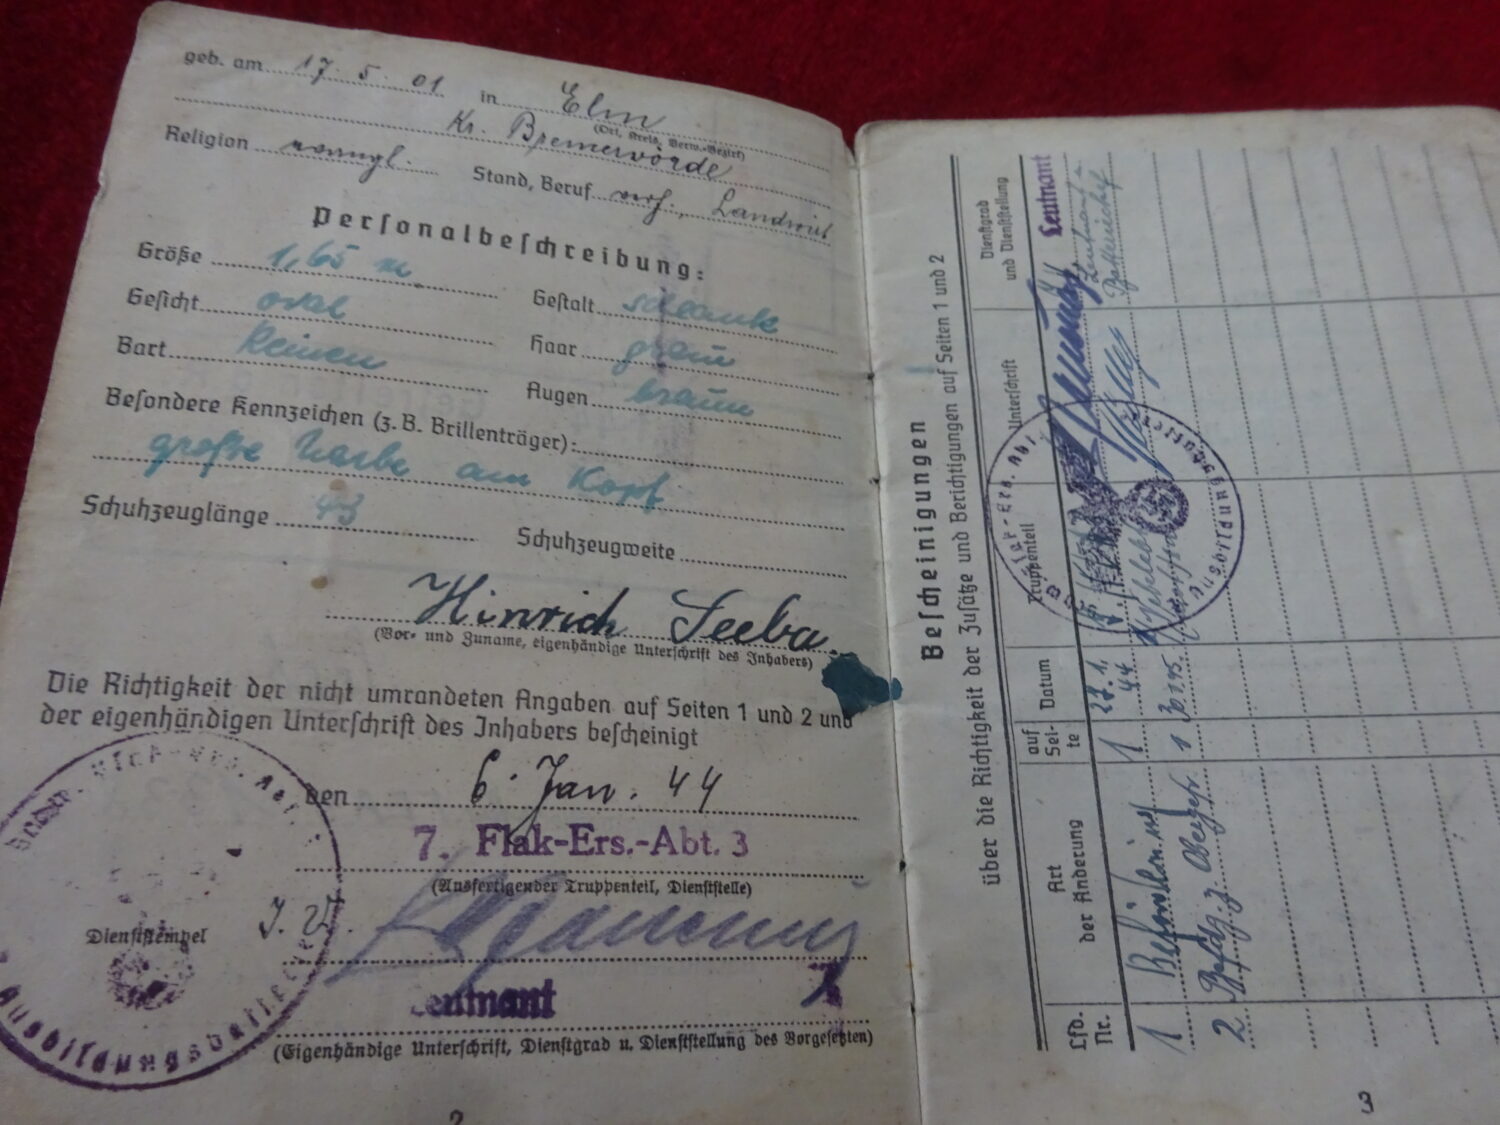 geb. am 17. 5. 01 in Elm
(Ort, Kreis, Verw.-Bezirk)
Kr. Bremervörde
Religion evangl. Stand, Beruf verh., Landwirt
Personalbeschreibung:
Größe 1,65 m Gestalt schlank
Gesicht oval Haar grau
Bart keinen Augen braun
Besondere Kennzeichen (z. B. Brillenträger):
große Narbe am Kopf
Schuhzeuglänge 43 Schuhzeugweite
Hinrich Seeba.
(Vor- und Zuname, eigenhändige Unterschrift des Inhabers)
Die Richtigkeit der nicht umrandeten Angaben auf Seiten 1 und 2 und
der eigenhändigen Unterschrift des Inhabers bescheinigt
den 6. Jan. 44
7. Flak-Ers.-Abt. 3
(Ausfertigender Truppenteil, Dienststelle)
Dienststempel
J. V.
Leutnant
(Eigenhändige Unterschrift, Dienstgrad u. Dienststellung des Vorgesetzten)
Ausbildungsbatterie
2
Bescheinigungen
über die Richtigkeit der Zusätze und Berichtigungen auf Seiten 1 und 2
Lfd. Nr.
Art der Änderung
auf Seite
Datum
Truppenteil
Unterschrift
Dienstgrad und Dienststellung
1 1 23.1. 44 Leutnant
2 1 30.1.45 Leutnant u.
Batteriechef
Flak-Ers. Abt
Ausbildungsbatterie
3